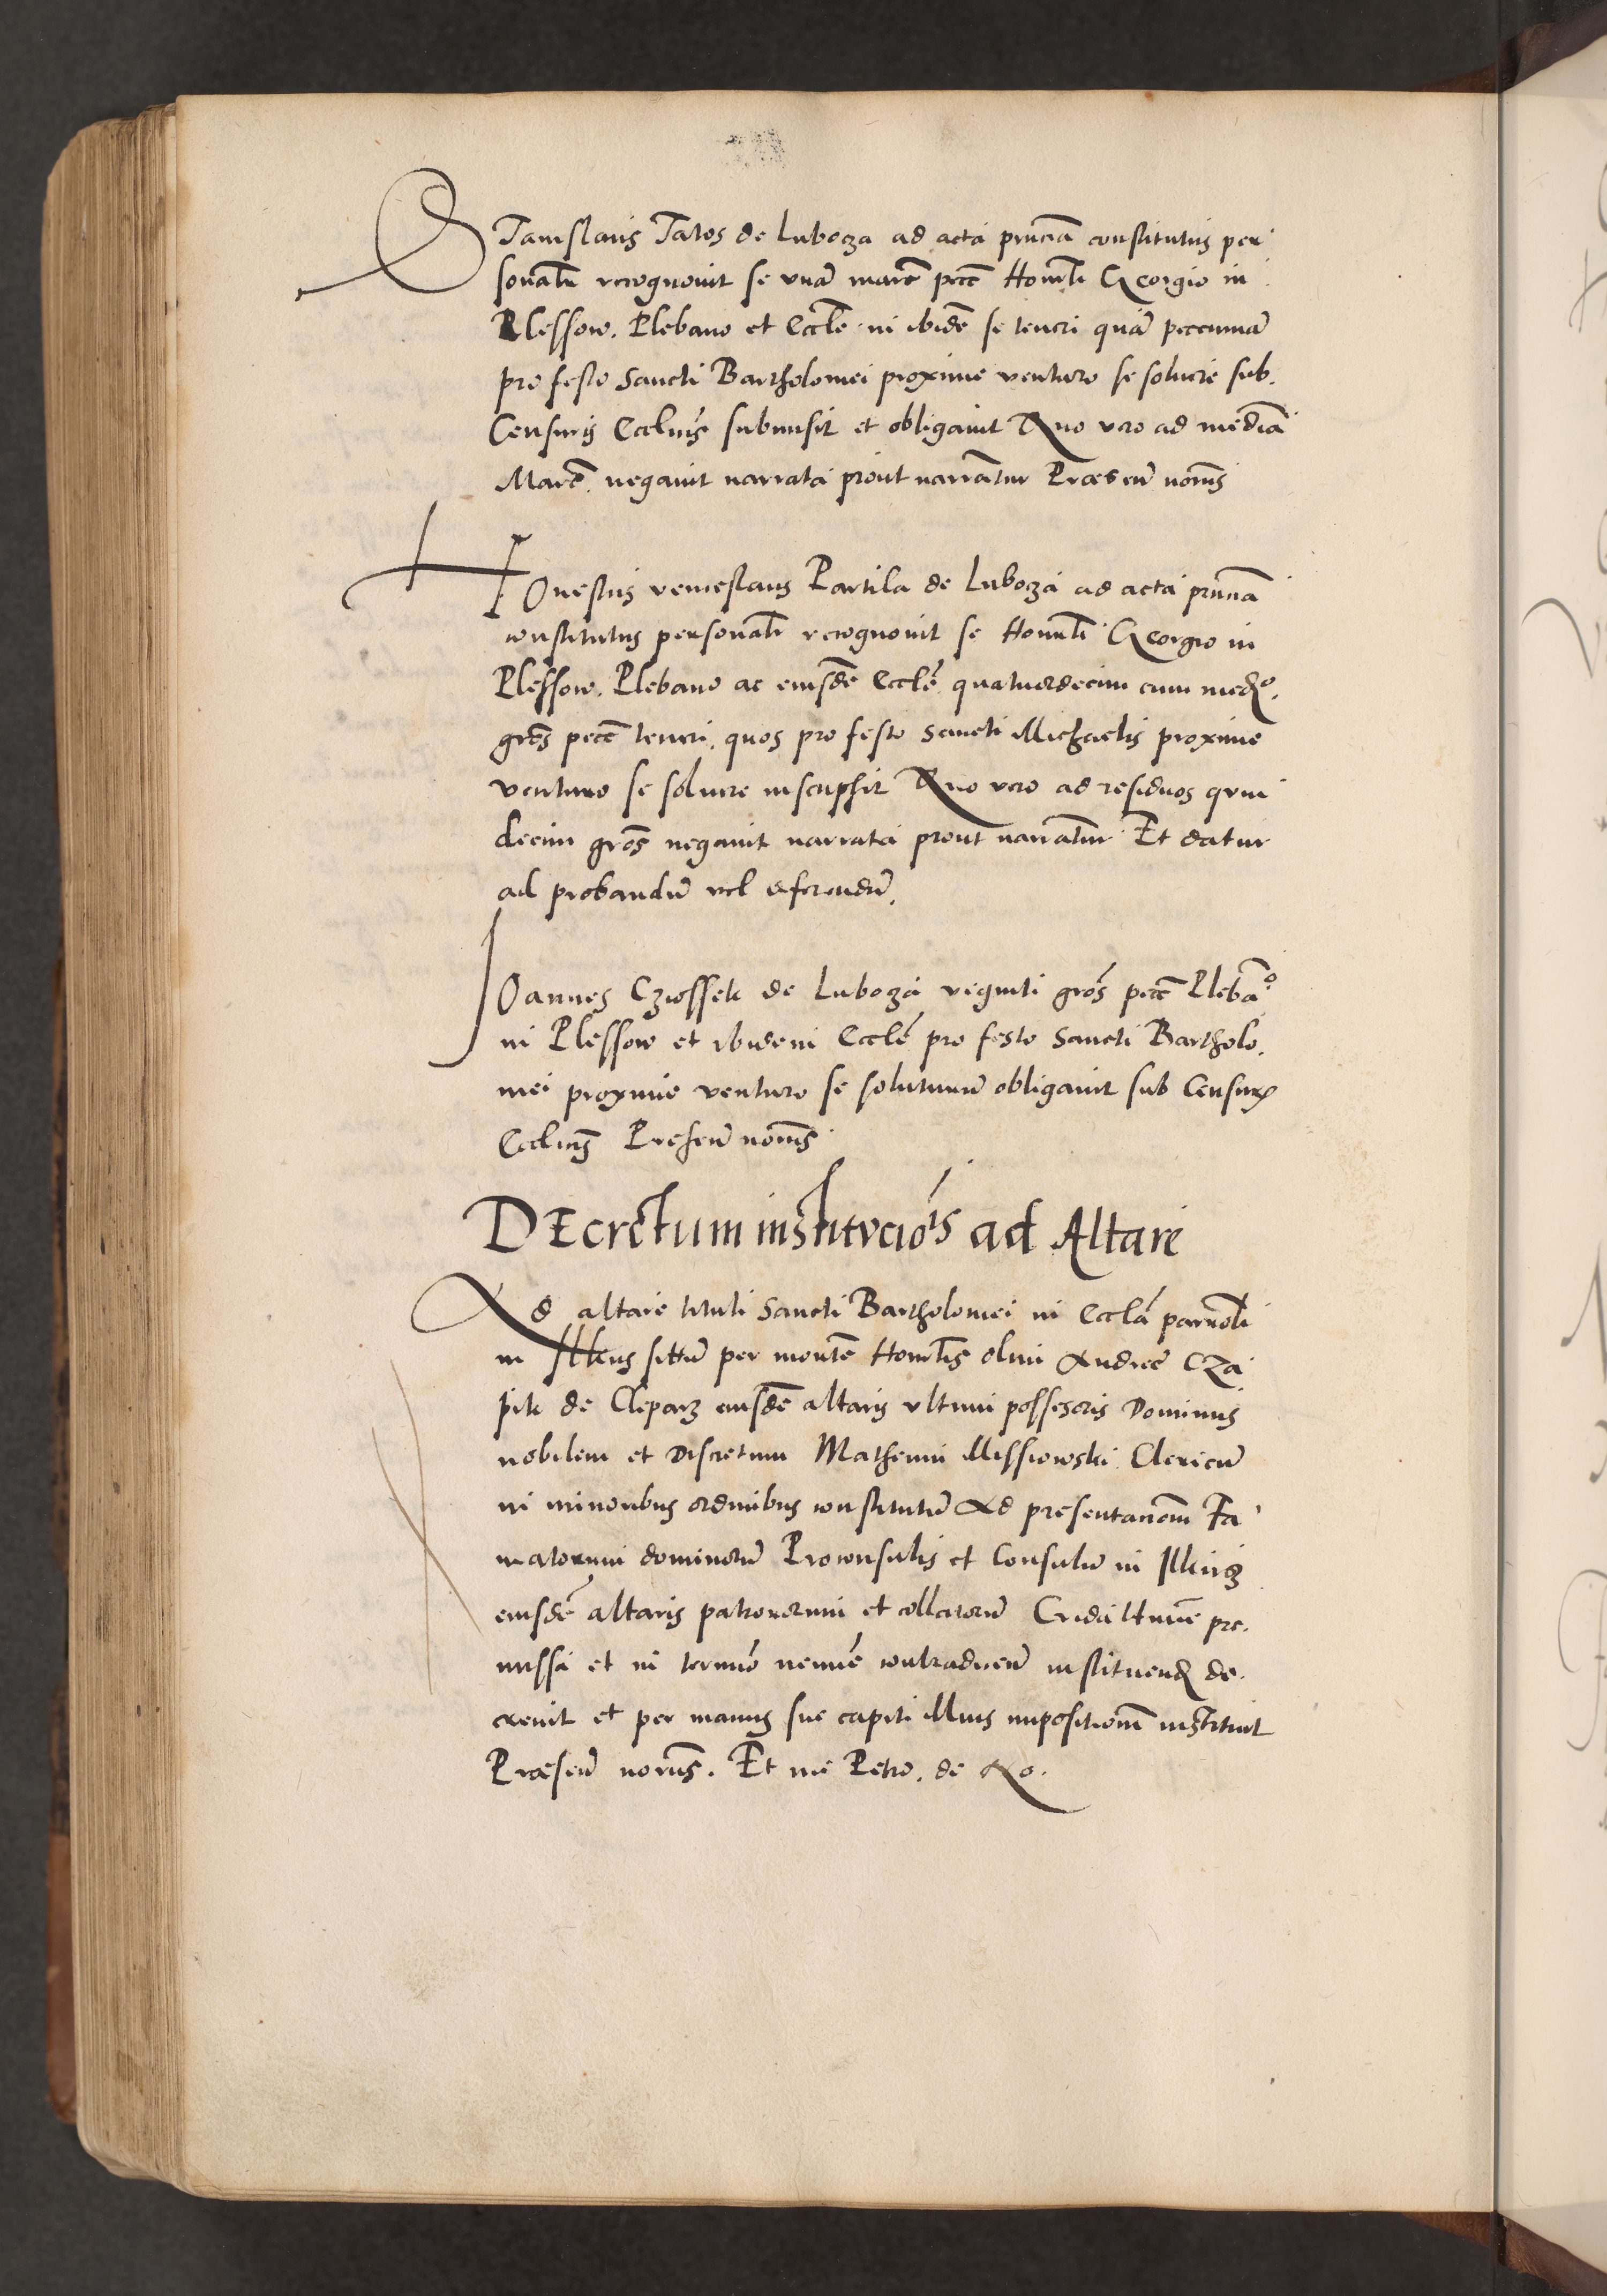 STanislaus Tatos de Luboza ad acta pñcia constitutus per
sonalr recognouit se vna marc pecc Honorli Georgio in
Plessow. Plebano et Eccle in ibide se teneri qua peccunia
pro festo Sancti Bartholomei proxime venturo se soluere sub.
Censuris Ecclnis submisit et obligauit Quo vero ad media
Marc negauit narrata prout narrantur Præseñ noñis
HOnestus venceslaus Partila de Luboza ad acta pñcia
constitutus personalr recognouit se Honorli Georgio in
Plessow. Plebano ac eiusde Eccle quatuordecim cum medo.
gros pecc teneri. quos pro festo Sancti Michaelis proxime
venturo se soluere inscripsit Quo vero ad residuos quin
decim gros negauit narrata prout narratur Et datur
ad probandu vel deferendu.
IOannes Cziossek de Luboza viginti gros pecc Plebano
in Plessow et ibidem Eccle pro festo Sancti Bartholo.
mei proxime venturo se soluturu obligauit sub Censuris
Ecclnis Preseñ noñis
DEcretum institucıois ad Altare
Ad altare tituli Sancti Bartholomei in Eccla parrochli
in Ilkus situ per morte Honorlis olim Andree Cza
pik de Clepar eiusde altaris vltimi possessoris Dominus
nobilem et Discretum Mathemi Missiowski Clericu
in minoribus ordinibus constitutu Ad presentacionem Fa
matorum dominoru Proconsulis et Consulu in Ilkusz
eiusde altaris patronorum et collatoru Crida ltime pre.
missa et in termino nemine contradiceñ instituend de.
creuit et per manus sue capiti illius impositionem instituit
Præseñ noñis. Et me Petro. de Ro.